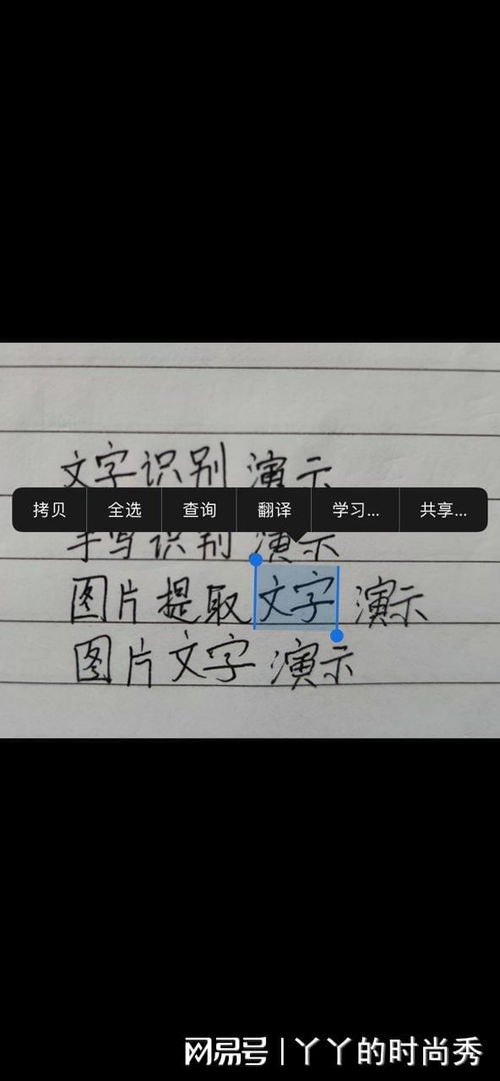 文字识别 演示
拷贝 全选 查询 翻译 学习... 共享...
手写识别 演示
图片提取文字 演示
图片文字 演示
网易号 | 丫丫的时尚秀